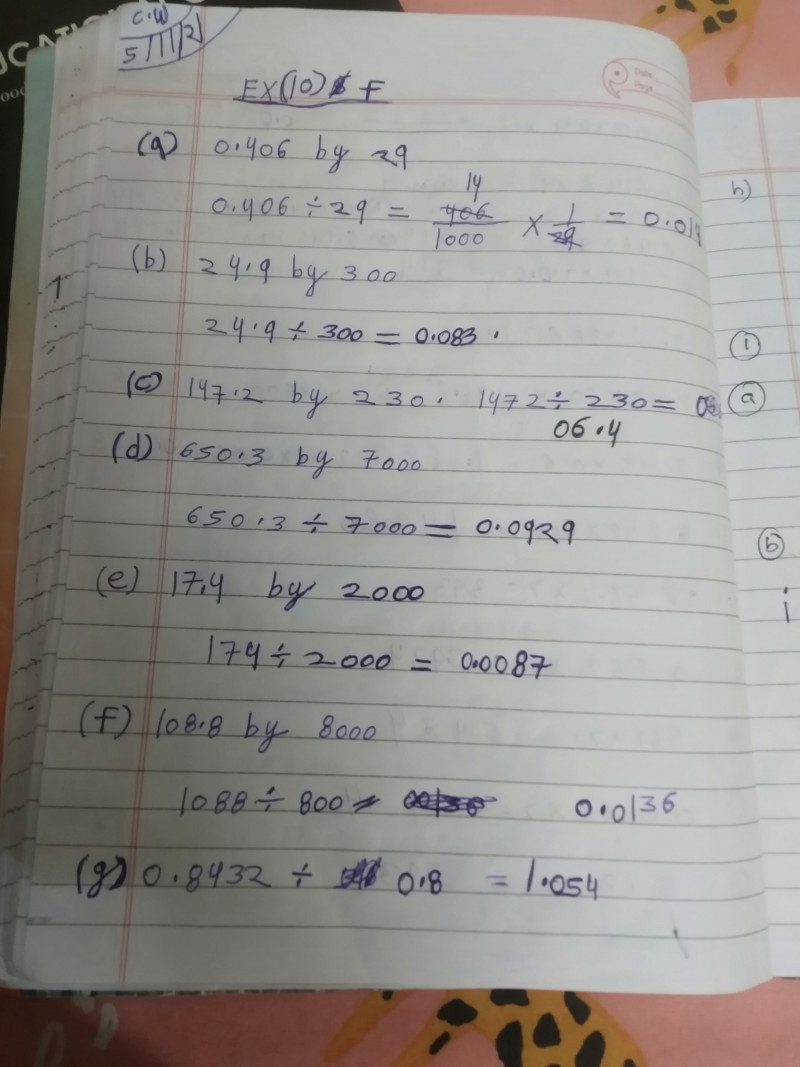 C.W
5/11/21
EX(10) F
(a) 0.406 by 29
0.406 ÷ 29 = 14 406/1000 × 1/29 = 0.014
(b) 24.9 by 300
24.9 ÷ 300 = 0.083 .
(c) 147.2 by 230. 1472 ÷ 230 = 06
06.4
(d) 650.3 by 7000
650.3 ÷ 7000 = 0.0929
(e) 17.4 by 2000
174 ÷ 2000 = 0.0087
(f) 108.8 by 8000
1088 ÷ 800 = 0.0136
(g) 0.8432 ÷ 0.8 = 1.054
h)
1
a
b
i